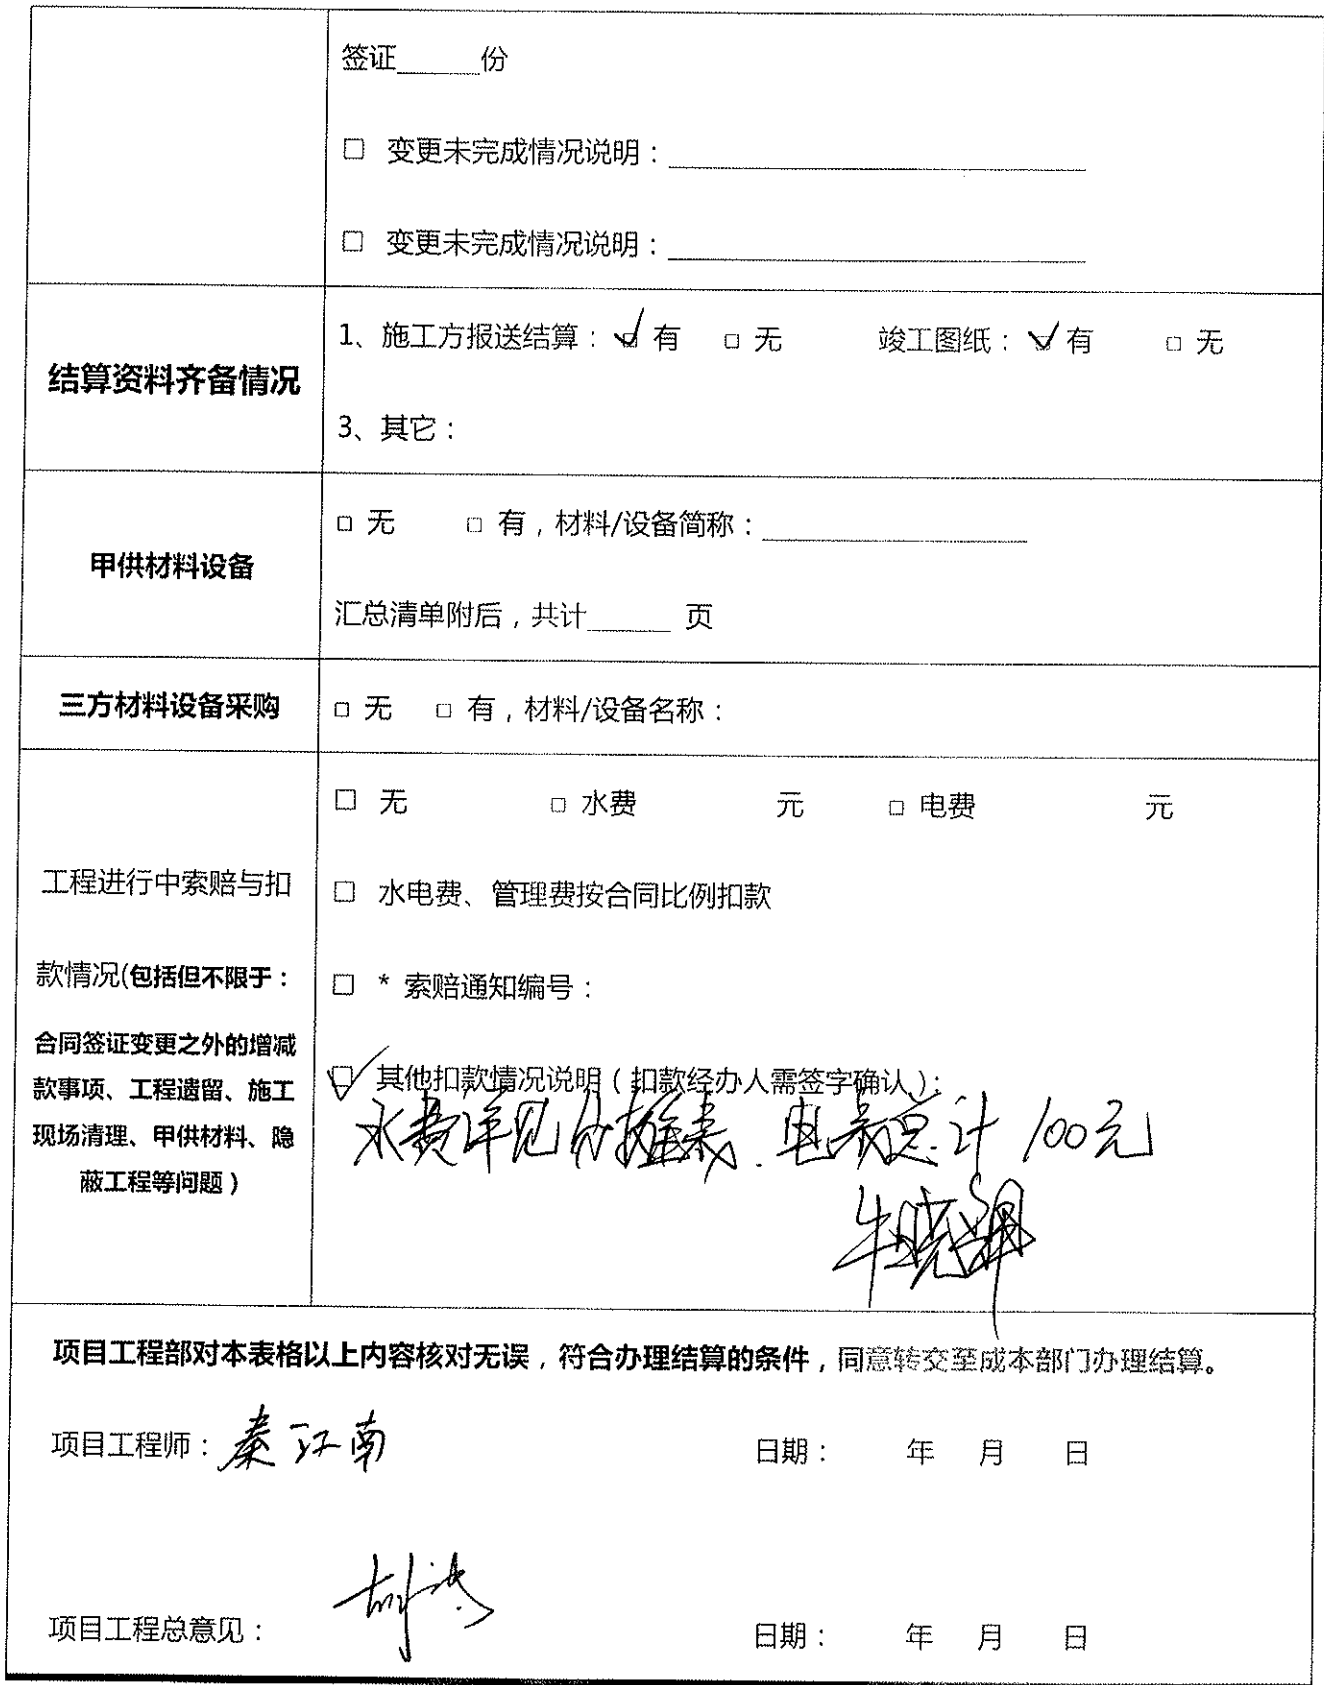 签证______份
□ 变更未完成情况说明：______________
□ 变更未完成情况说明：______________
结算资料齐备情况
1、施工方报送结算：☑ 有 □ 无 竣工图纸：☑ 有 □ 无
3、其它：
甲供材料设备
□ 无 □ 有，材料/设备简称：______________
汇总清单附后，共计______ 页
三方材料设备采购
□ 无 □ 有，材料/设备名称：
工程进行中索赔与扣
款情况(包括但不限于：
合同签证变更之外的增减
款事项、工程遗留、施工
现场清理、甲供材料、隐
蔽工程等问题）
□ 无 □ 水费 元 □ 电费 元
□ 水电费、管理费按合同比例扣款
□ * 索赔通知编号：
☑ 其他扣款情况说明（扣款经办人需签字确认）：
水费详见分摊表、电费总计100元
牛晓翔
项目工程部对本表格以上内容核对无误，符合办理结算的条件，同意转交至成本部门办理结算。
项目工程师：秦江南 日期： 年 月 日
项目工程总意见： 日期： 年 月 日